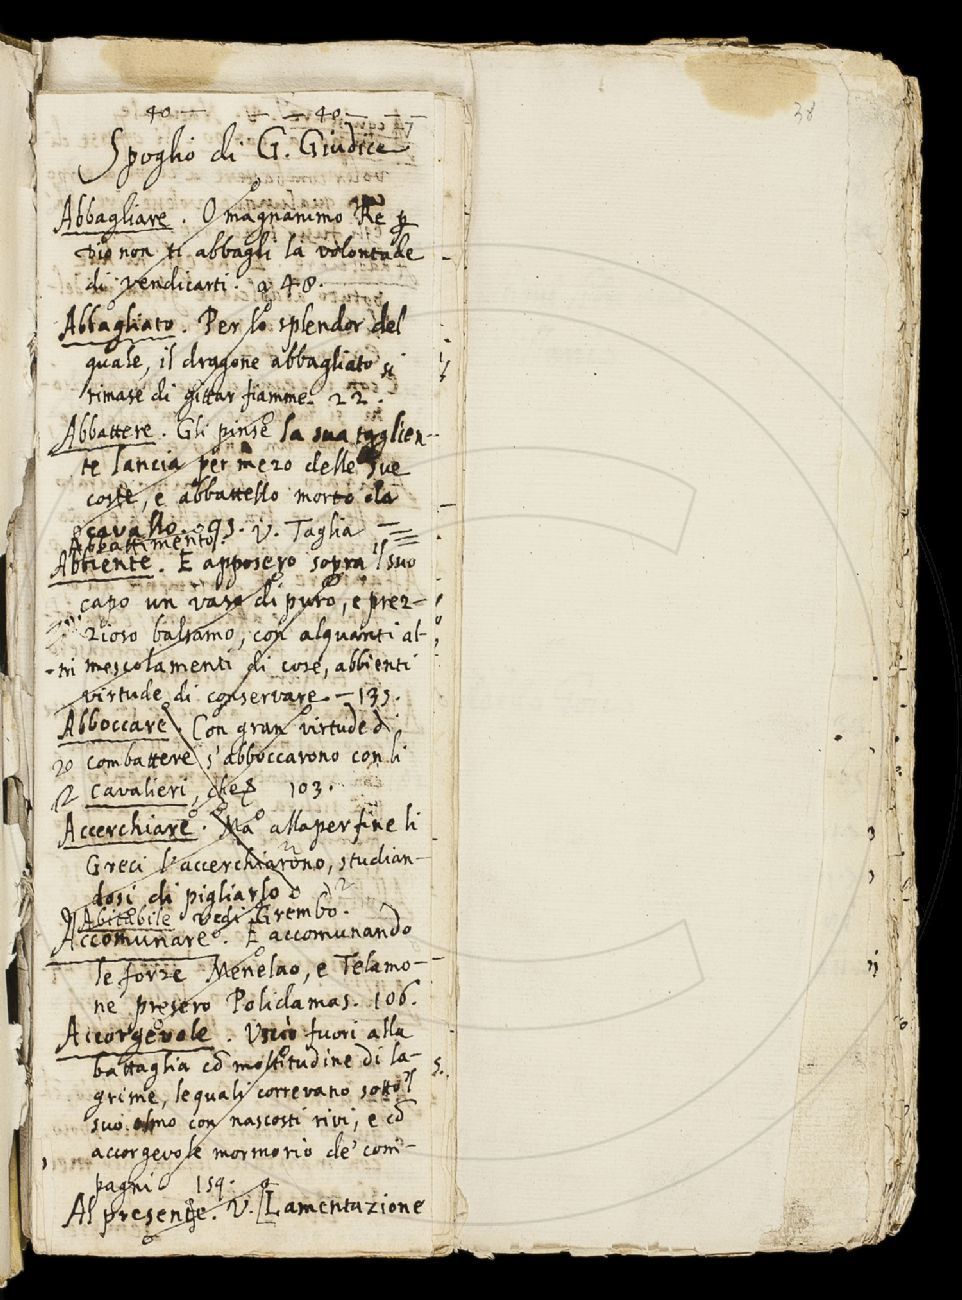 40 — — 40 —
38
Spoglio di G. Giudice
Abbagliare. O magnanimo Re p
Dio non ti abbagli la volontade
di vendicarti. a 48.
Abbagliato. Per lo splendor del
quale, il dragone abbagliato si
rimase di gittar fiamme. 22.
Abbattere. Gli pinse la sua taglien-
te lancia per mezo delle sue
coste, e abbattello morto da
cavallo. 93. V. Taglia
Abbattimento
Abbiente. E apposero sopra 'l suo
capo un vaso di puro, e prez-
zioso balsamo, con alquanti al-
tri mescolamenti di cose, abbienti
virtude di conservare — 133.
Abboccare. Con gran virtude di
combattere s'abboccarono con li
Cavalieri, che 103.
Accerchiare. Ma alla perfine li
Greci l'accerchiarono, studian-
dosi di pigliarlo
Abitabile Vedi Grembo.
Accomunare. E accomunando
le forze Menelao, e Telamo-
ne presero Polidamas. 106.
Accorgevole. Uscio fuori alla
battaglia cō moltitudine di la-
grime, le quali correvano sotto 'l
suo elmo con nascosti rivi, e cō
accorgevole mormorio de' com-
pagni 159.
Al presente. V. Lamentazione